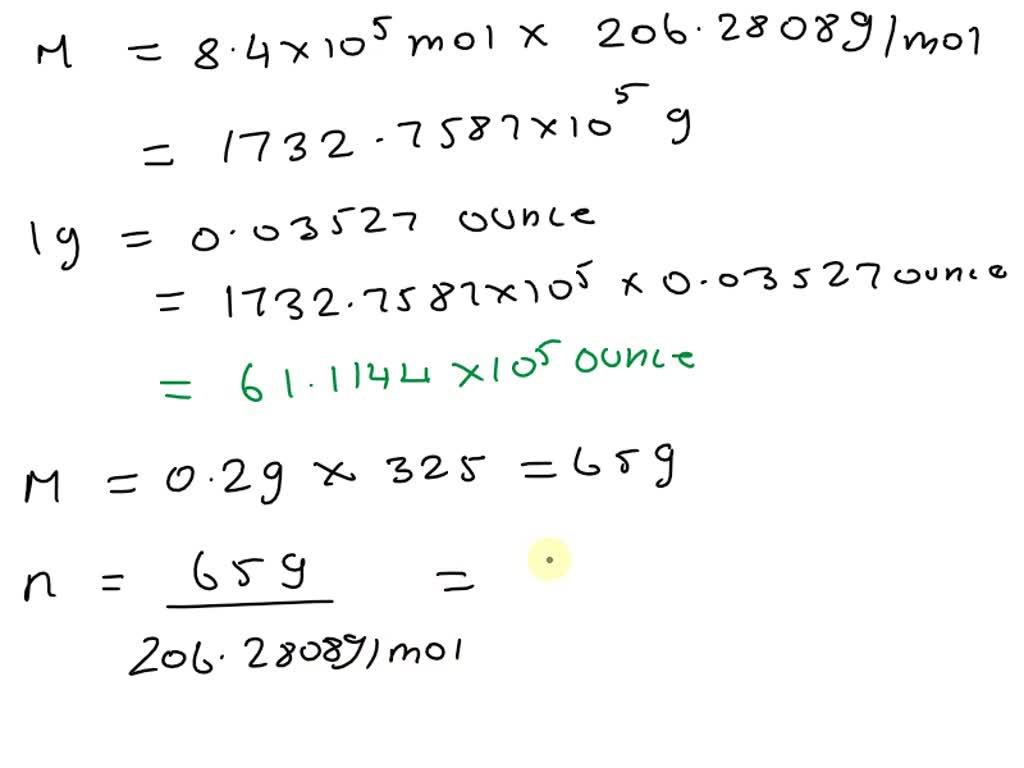 M = 8.4×10⁵ mol × 206.2808g/mol
= 1732.7587×10⁵ g
1g = 0.03527 ounce
= 1732.7587×10⁵ × 0.03527 ounce
= 61.1144 ×10⁵ ounce
M = 0.2g × 325 = 65g
n = 65g / 206.2808g/mol =